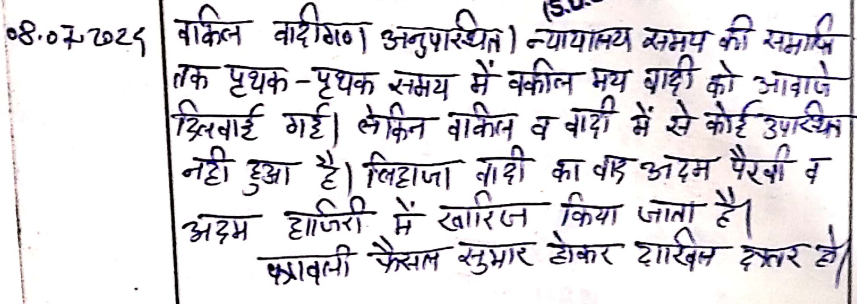 (S.U.
08.07.2025 वकिल वादीगण अनुपस्थित। न्यायालय समय की समाप्ति
तक पृथक-पृथक समय में वकील मय वादी को आवाजे
दिलवाई गई। लेकिन वाकिल व वादी में से कोई उपस्थित
नही हुआ है। लिहाजा वादी का वाद अदम पैरवी व
अदम हाजिरी में खारिज किया जाता है।
पत्रावली फैसल सुमार होकर दाखिल दफ्तर हो।